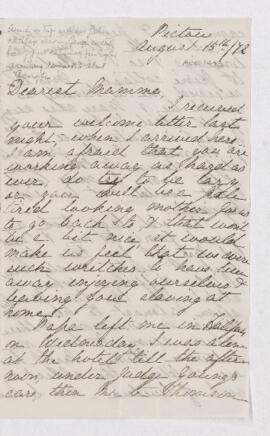 Pictou
August 15th/78
Dearest Mamma,
I received
your welcome letter last
night, when I arrived here.
I am afraid that you are
working away as hard as
ever, do try to be lazy
or you will be a pale
tired looking mother for us
to go back to & that won't
be a bit nice it would
make us feel that we were
such wretches to have been
away enjoying ourselves &
leaving you slaving at
home.
Papa left me in Halifax
on Wednesday, I was alone
at the hotel till the after
noon under Judge Young's
care, then Mr & Thomson